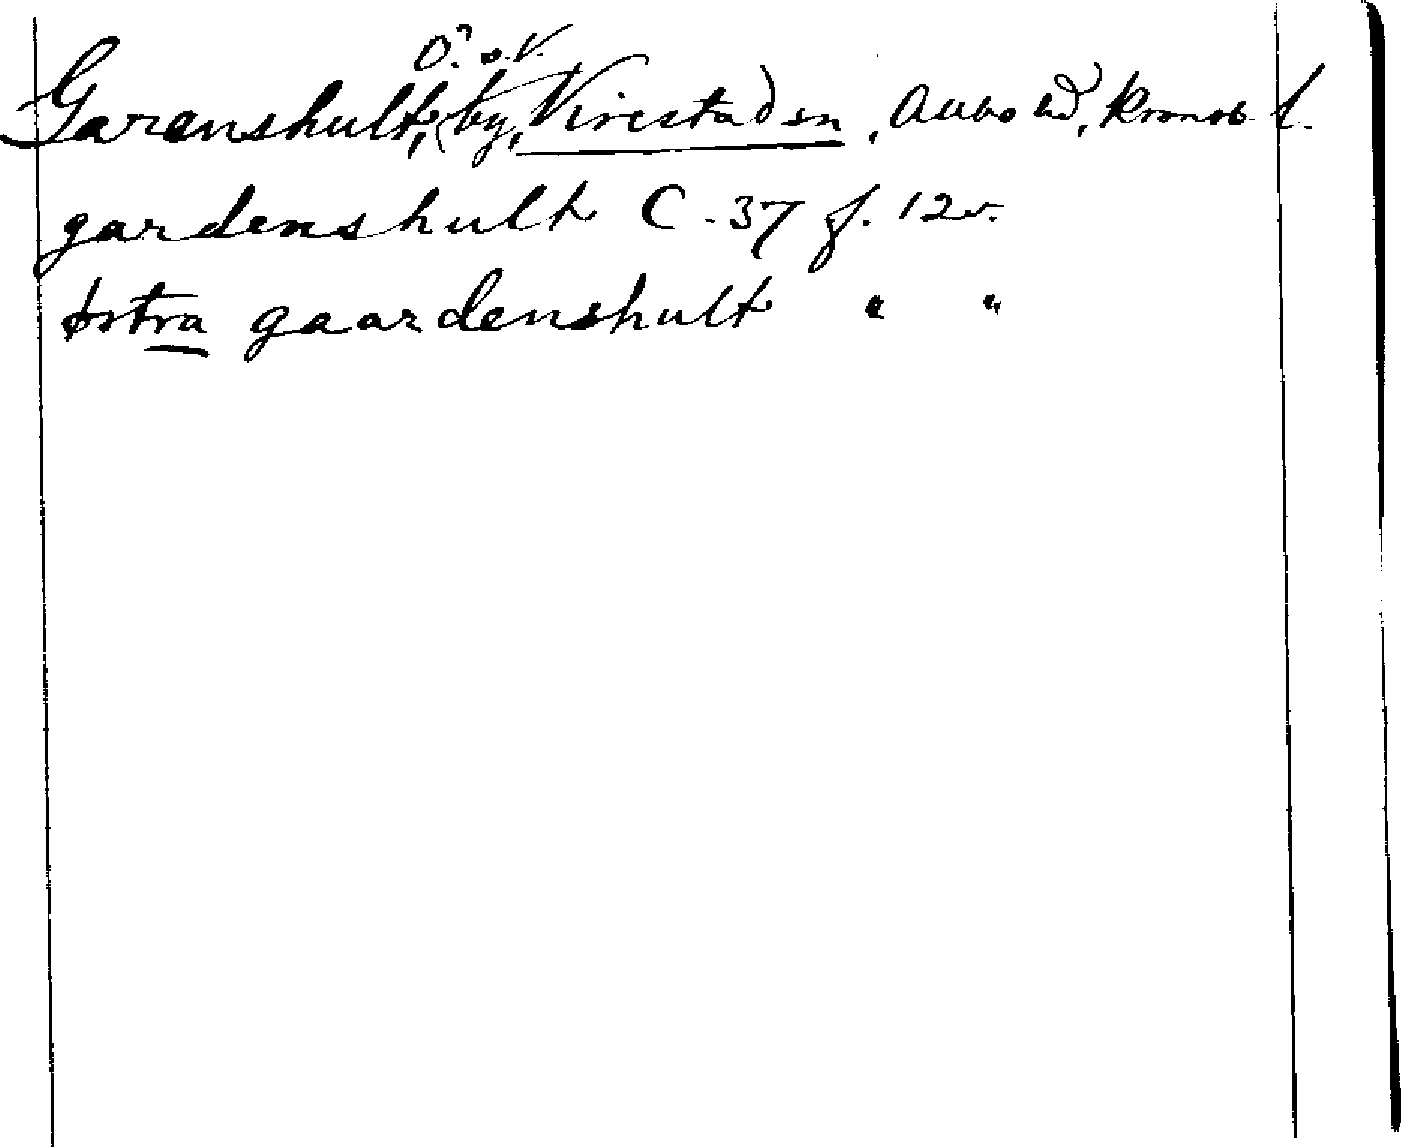 Ö. o. V.
Garenshult, (by, Virestad sn, Allbo hd, Kronob. l.
gardenshult C. 37 f. 12 v.
østra gaardenshult " "